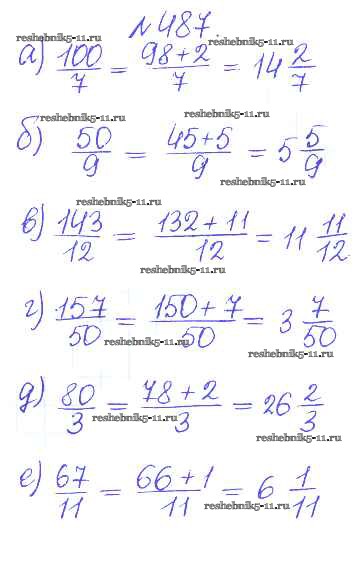 №487.
reshebnik5-11.ru reshebnik5-11.ru
а) 100/7 = (98+2)/7 = 14 2/7
reshebnik5-11.ru
б) 50/9 = (45+5)/9 = 5 5/9
reshebnik5-11.ru
reshebnik5-11.ru
в) 143/12 = (132+11)/12 = 11 11/12
reshebnik5-11.ru
г) 157/50 = (150+7)/50 = 3 7/50
reshebnik5-11.ru
reshebnik5-11.ru
д) 80/3 = (78+2)/3 = 26 2/3
reshebnik5-11.ru
reshebnik5-11.ru
е) 67/11 = (66+1)/11 = 6 1/11
reshebnik5-11.ru